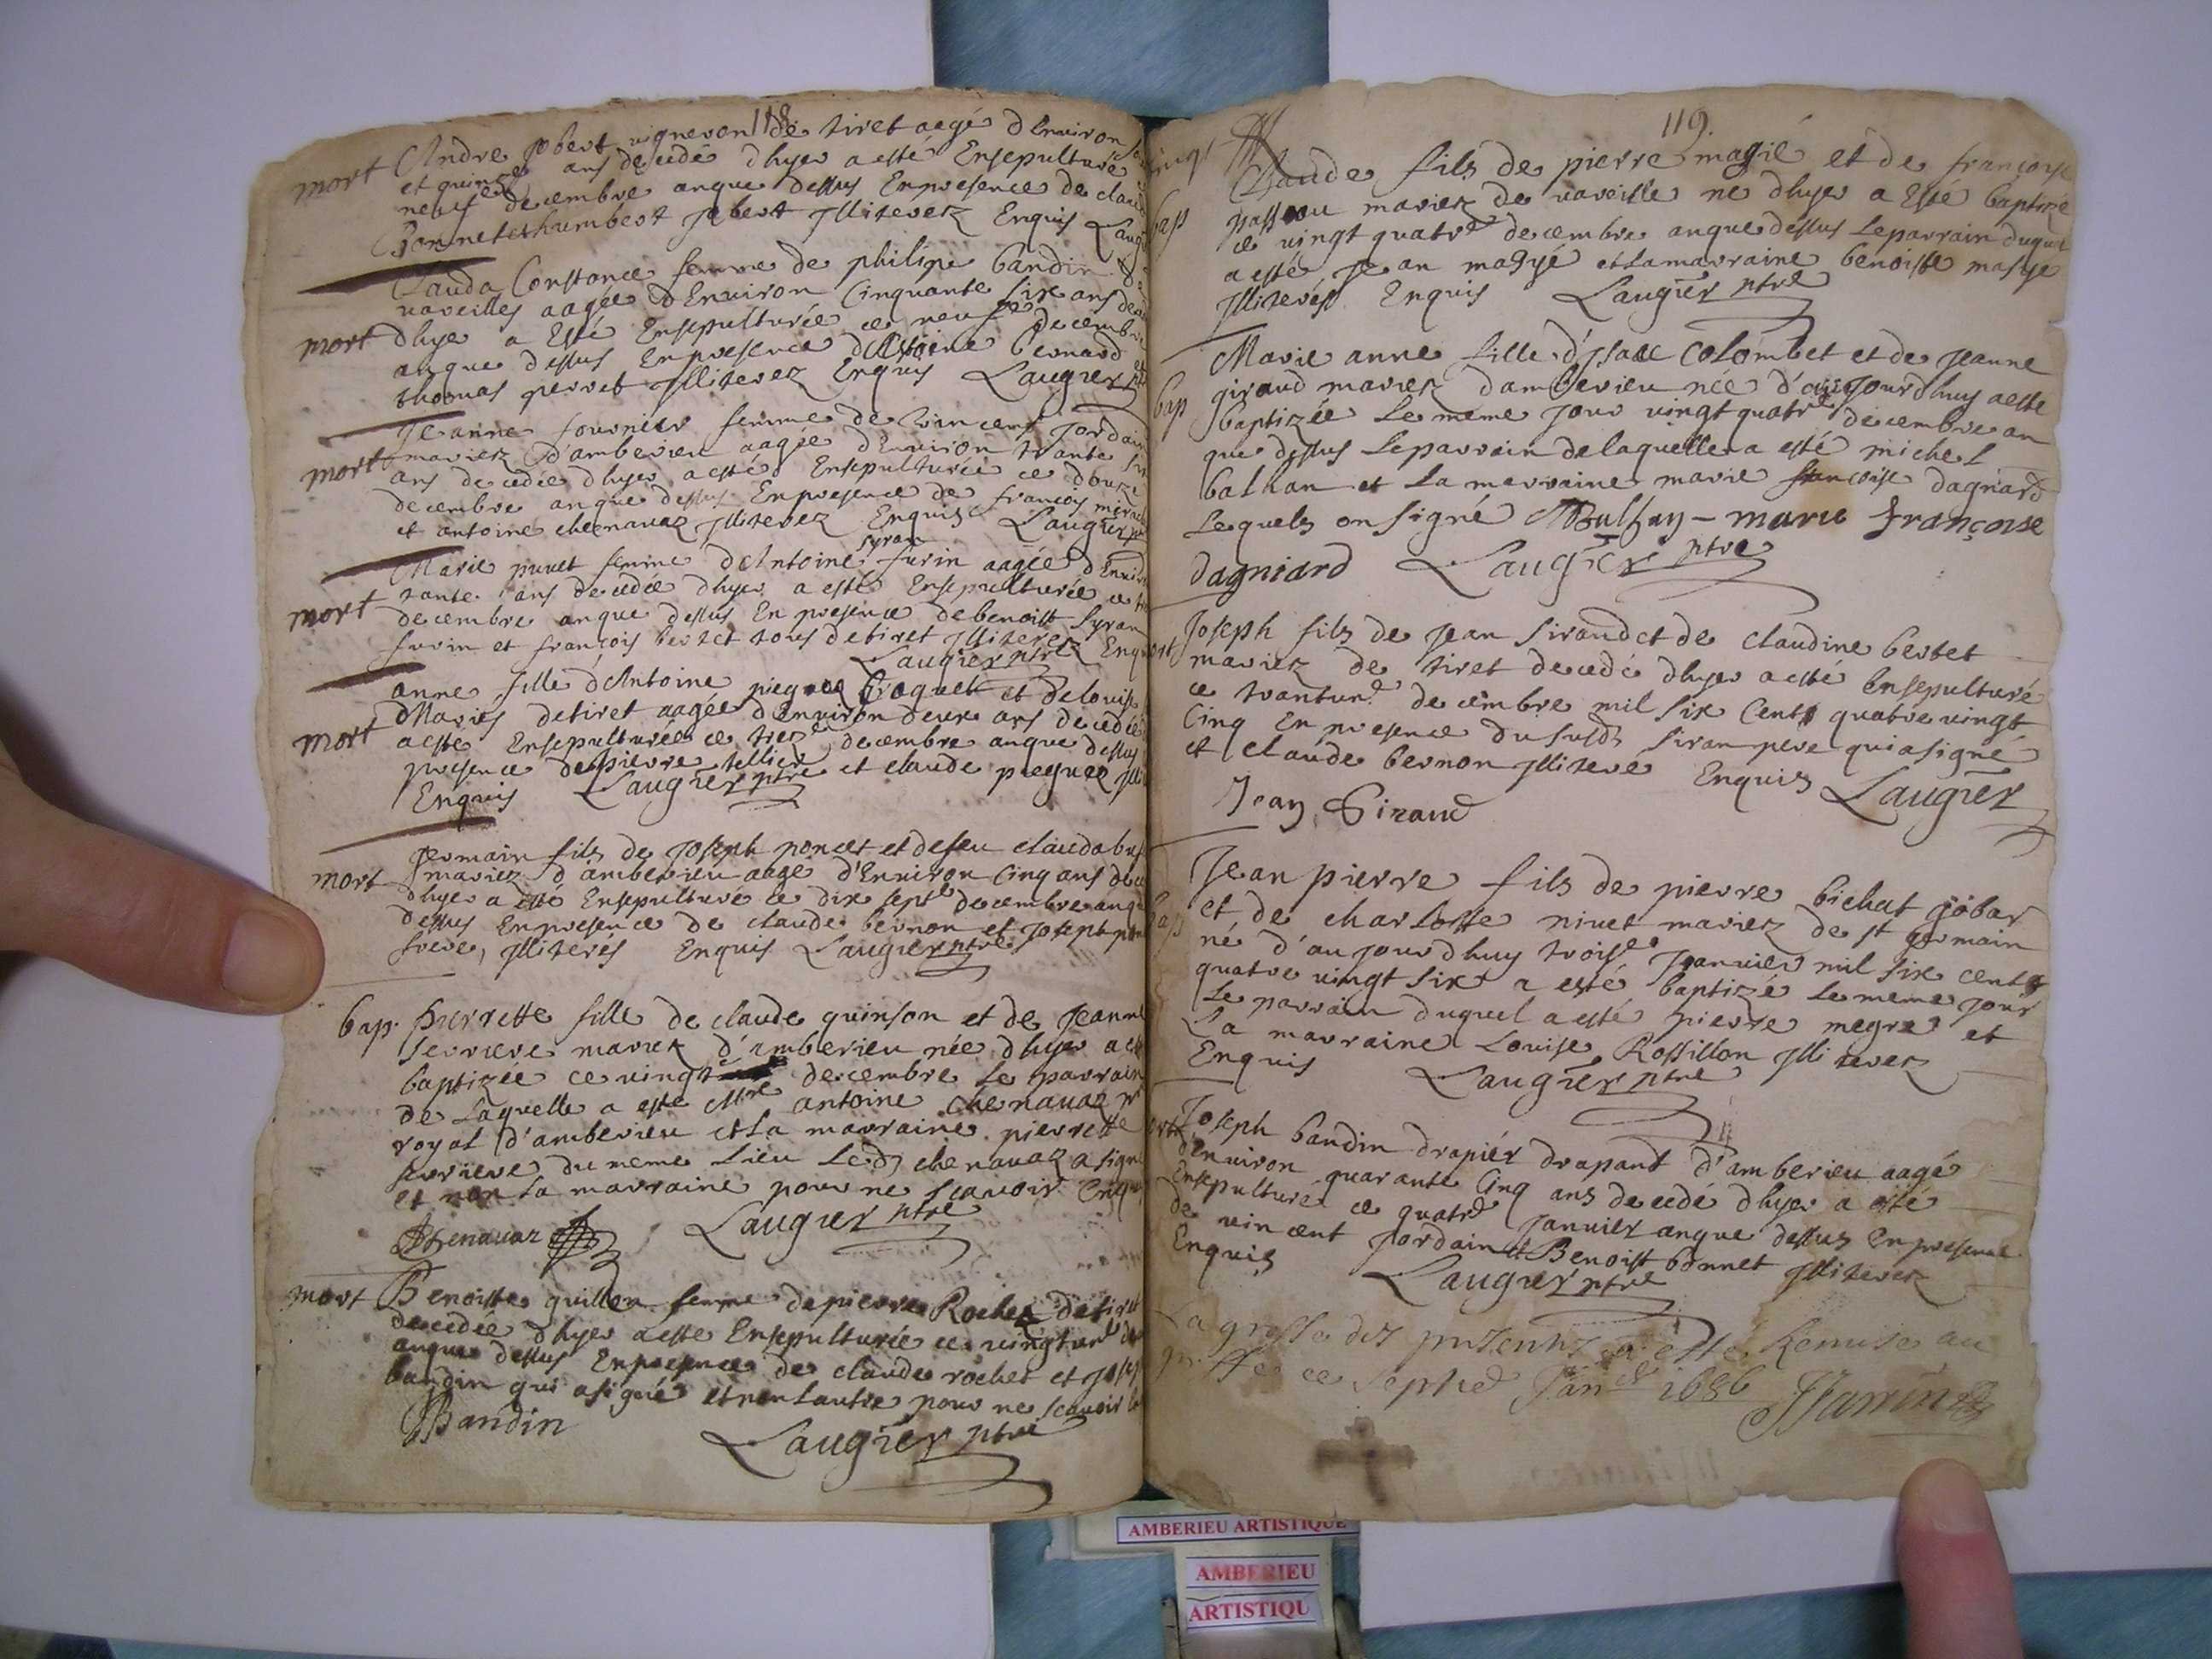 118
mort Andre Jobert vigneron de tiret aagé d'Environ
et quinze ans decedé dhyer a esté Ensepulturé
neufe decembre anque dessus Enpresence de claud
Bonnet et humbert Jobert Illiterez Enquis Laug
Clauda Constance femme de philipe bandin de
vaveilles aagée d'Environ Cinquante six ans deced
mort dhyer a Esté Ensepulturée ce neufe decembre
anque dessus Enpresence d'Antoine bernard et
thomas perret Illiterez Enquis Laugier ptre
Jeanne fournier femme de vincent Jordain
mort mariez d'amberieu aagée d'Environ trante six
ans decedée dhyer a esté Ensepulturée ce douze
decembre anque dessus Enpresence de françois
et antoine chenavaz Illiterez Enquis Laugier ptre
syran
Marie puvet femme d'Antoine furin aagée d'Envir
tante ans decedée dhyer a esté Ensepulturée ce
mort decembre anque dessus En presence de benoist syran
furin et françois bertet tous de tiret Illiterez Enqu
Laugier ptre
anne fille d'Antoine pieguez Croquet et de Louise
Maries de tiret aagée d'Environ deux ans decedée
mort a esté Ensepulturée ce treze decembre anque dessus
presence de pierre tellier et claude pieguez Illi
Enquis Laugier ptre
Germain fils de Joseph poncet et de feu clauda
mort mariez d'amberieu aagé d'Environ Cinq ans dece
dhyer a esté Ensepulturé ce dix septe decembre anqu
dessus Enpresence de claude bernon et Joseph pon
frere, Illiterés Enquis Laugier ptre
bap. pierrette fille de claude quinson et de Jeanne
serriere mariez d'amberieu née dhyer a est
baptizée ce vingt decembre Le parrain
de Laquelle a esté Mre antoine chenavaz
royal d'amberieu et La marraine pierrette
serriere du meme Lieu Led chenavaz a signé
et non La marraine pour ne scavoir Enqu
Chenavaz Laugier ptre
mort Benoiste guillon femme de pierre Rochez de tiret
decedée dhyer a esté Ensepulturée ce vingt une
anque dessus Enpresence de claude rochet et Josep
bandin qui a signé et non Lautre pour ne scavoir
JBandin Laugier ptre
119.
Claude fils de pierre magié et de françoyse
bap passou mariez de vaveille né dhyer a Esté baptizé
ce vingt quatre decembre anque dessus Le parrain duquel
a esté Jean magyé et La marraine benoiste magye
Illiterés Enquis Laugier ptre
Marie anne fille d'Isaac Colombet et de Jeanne
bap giraud mariez d'amberieu née d'aujourdhuy a esté
baptizée Le meme jour vingt quatre decembre an
que dessus Le parrain de laquelle a esté michel
balhan et La marraine marie françoise dagnard
Lequels on signé MBalfan - marie françoise
dagniard Laugier ptre
Joseph fils de Jean siraud et de claudine bertet
mariez de tiret decedé dhyer a esté Ensepulturé
ce tranteune decembre mil six Cents quatre vingt
Cinq En presence du susd siran pere qui a signé
et claude bernon Illitere Enquis Laugier
Jean Siraud
Jean pierre fils de pierre bichat gobar
bap et de charlotte nivet mariez de st germain
né d'aujourdhuy troise Jeanvier mil six cents
quatre vingt six a esté baptizé Le meme jour
Le parrain duquel a esté pierre megre et
La marraine Louise Rossillon Illiterez
Enquis Laugier ptre
Joseph bandin drapier drapant d'amberieu aagé
d'environ quarante Cinq ans decedé dhyer a esté
Ensepulturé ce quatre Janvier anque dessus Enpresence
de vincent Jordain et Benoist bonnet Illiterez
Enquis Laugier ptre
La grosse des presentes a esté Remise au
greffe ce septie Janer 1686
AMBERIEU ARTISTIQUE
AMBERIEU
ARTISTIQU